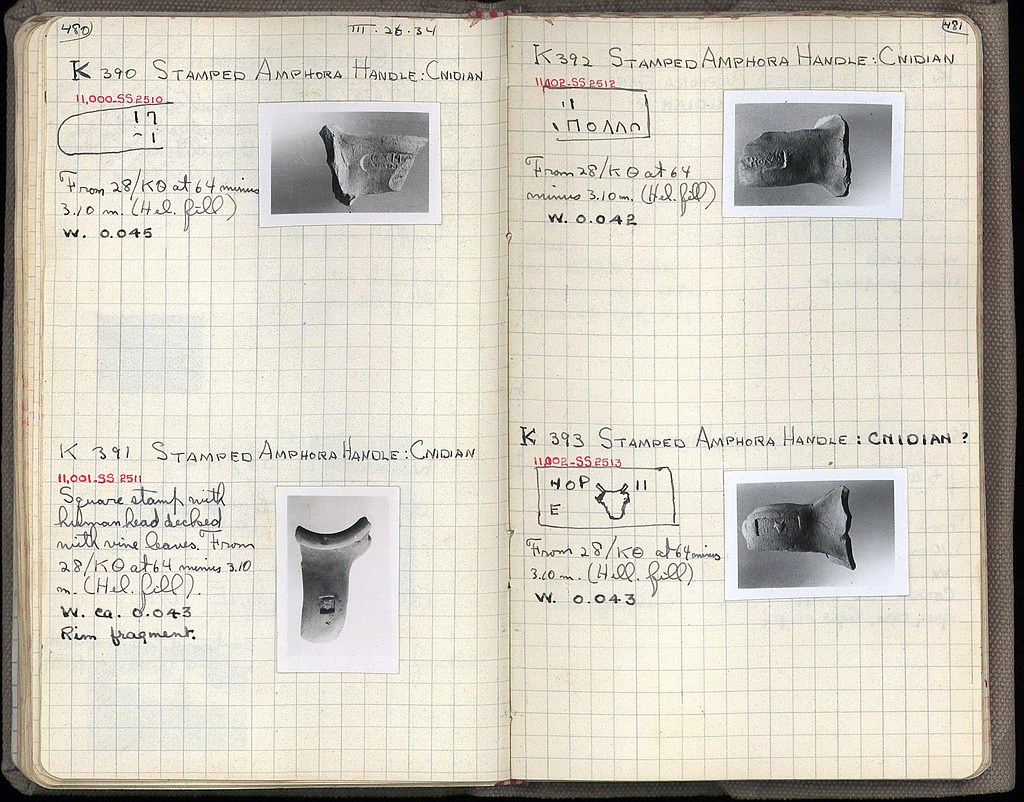 480
III . 26 . 34
K 390 STAMPED AMPHORA HANDLE : CNIDIAN
11,000-SS 2510
From 28/ΚΘ at 64 minus
3.10 m. (Hel. fill)
W. 0.045
K 391 STAMPED AMPHORA HANDLE : CNIDIAN
11,001-SS 2511
Square stamp with
human head decked
with vine leaves. From
28/ΚΘ at 64 minus 3.10
m. (Hel. fill).
W. ca. 0.043
Rim fragment.
481
K 392 STAMPED AMPHORA HANDLE : CNIDIAN
11,002-SS 2512
ΠΟΛΛΠ
From 28/ΚΘ at 64
minus 3.10 m. (Hel. fill)
W. 0.042
K 393 STAMPED AMPHORA HANDLE : CNIDIAN ?
11,002-SS 2513
ΗΟΡ ΙΙ
Ε
From 28/ΚΘ at 64 minus
3.10 m. (Hell. fill)
W. 0.043